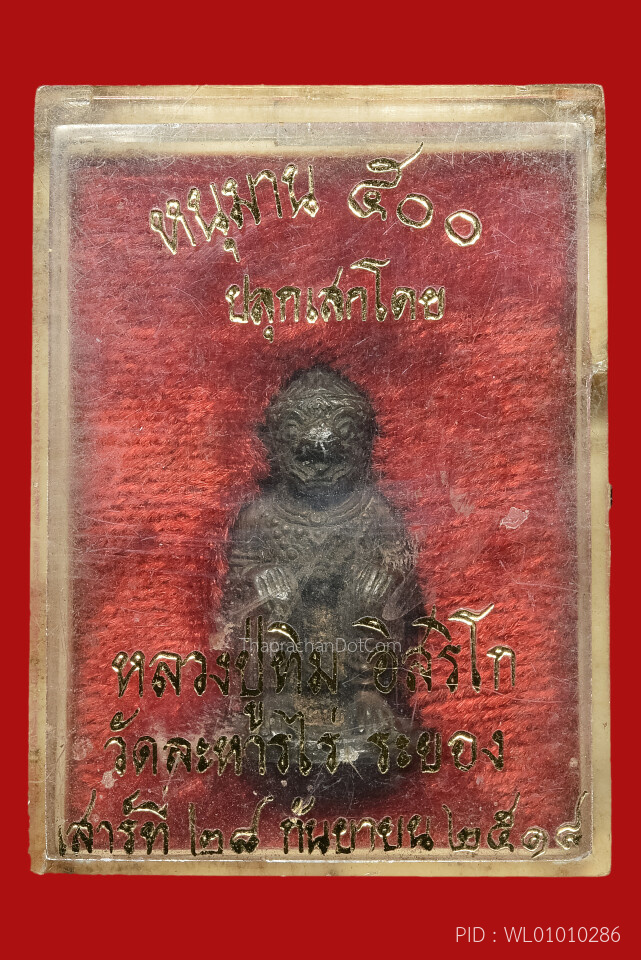 หนุมาน ๕๐๐
ปลุกเสกโดย
ThaprachanDotCom
หลวงปู่ทิม อิสริโก
วัดละหารไร่ ระยอง
เสาร์ที่ ๒๘ กันยายน ๒๕๑๘
PID : WL01010286